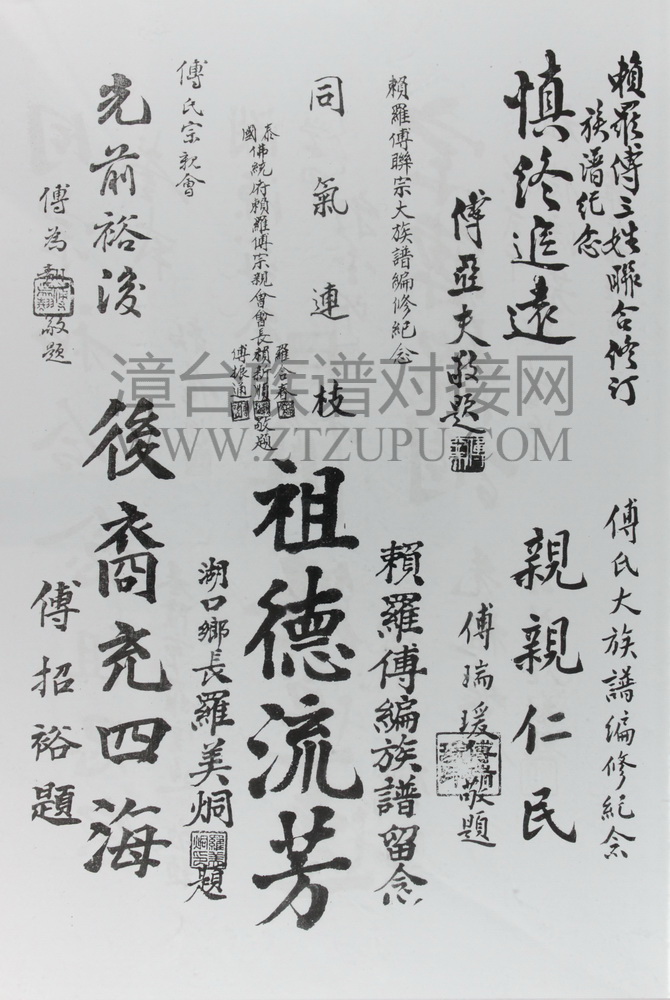 賴羅傅三姓聯合修訂
族譜纪念
慎终追遠
傅亞夫敬题
賴羅傅聯宗大族譜編修紀念
同氣連枝
泰國佛統府賴羅傅宗親會會長
羅合春
賴新順
傅振通
敬题
傅氏宗親會
光前裕後
傅為
敬题
傅氏大族譜編修紀念
親親仁民
傅瑞瑗敬題
賴羅傅編族譜留念
祖德流芳
湖口鄉長羅美烔題
後裔充四海
傅招裕題
漳台族谱对接网
WWW.ZTZUPU.COM